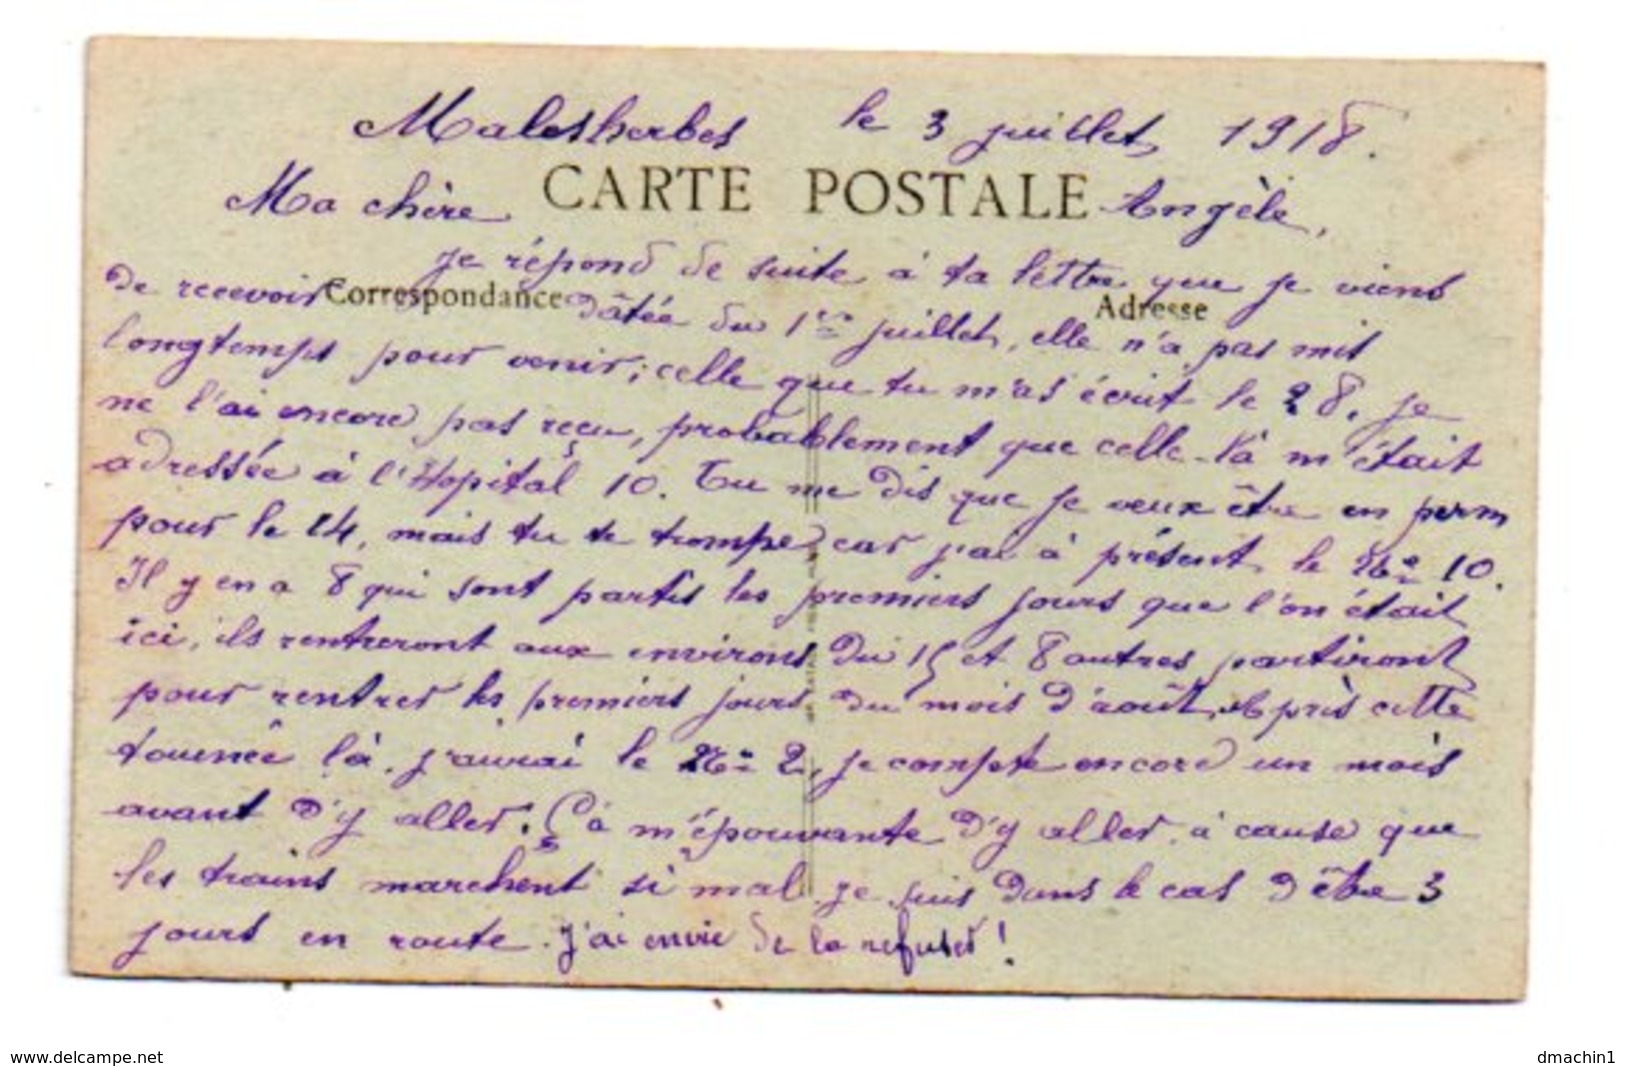 Malesherbes le 3 juillet 1918.
Ma chère CARTE POSTALE Angèle,
Je répond de suite à ta lettre que je viens
de recevoir Correspondance dâtée du 1er juillet, elle n'a pas mis Adresse
longtemps pour venir; celle que tu m'as écrit le 28. Je
ne l'ai encore pas reçu, probablement que celle-là m'était
adressée à l'Hopital 10. Tu me dis que je veux être en perm
pour le 14, mais tu te trompe car j'ai à présent le No 10.
Il y en a 8 qui sont partis les premiers jours que l'on était
ici, ils rentreront aux environs du 15 et 8 autres partiront
pour rentrer les premiers jours du mois d'août, Après cette
tournée là, j'aurai le No 2, je compte encore un mois
avant d'y aller. Ça m'épouvante d'y aller à cause que
les trains marchent si mal je suis dans le cas d'être 3
jours en route. J'ai envie de la refuser!
www.delcampe.net dmachin1